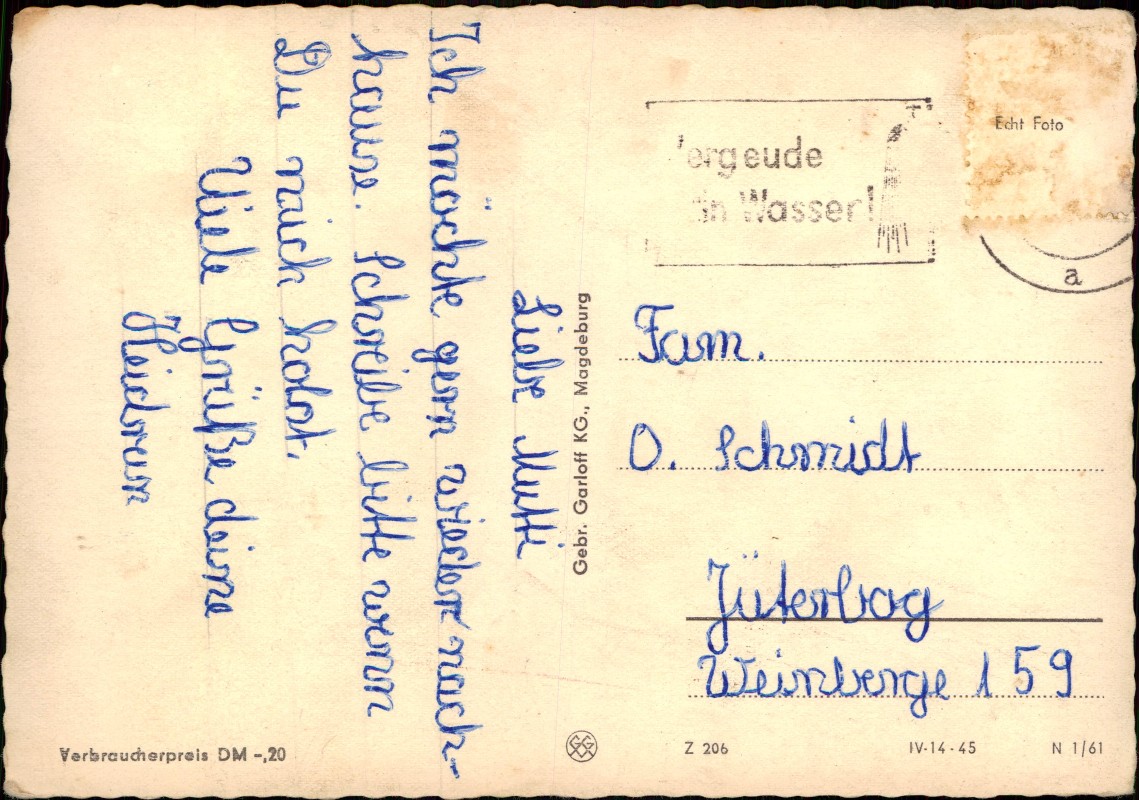 Liebe Mutti
Ich möchte gern wieder nach-
hause. Schreibe bitte wenn
Du mich holst.
Viele Grüße deine
Heidrun
Gebr. Garloff KG., Magdeburg
Echt Foto
ergeude
in Wasser!
a
Fam.
O. Schmidt
Jüterbog
Weinberge 159
Verbraucherpreis DM -,20
Z 206
IV-14-45
N 1/61